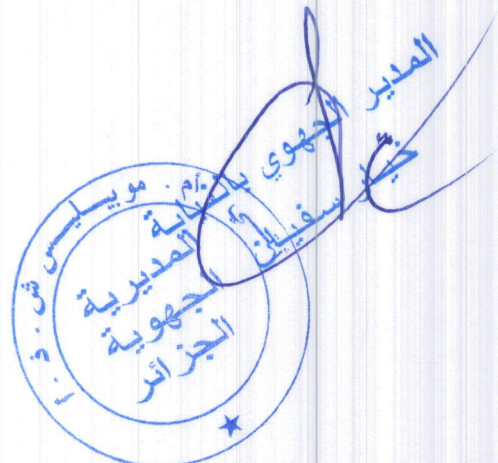 المدير الجهوي بالنيابة
سفيان
أم. موبيليس ش.ذ.أ
المديرية
الجهوية
الجزائر